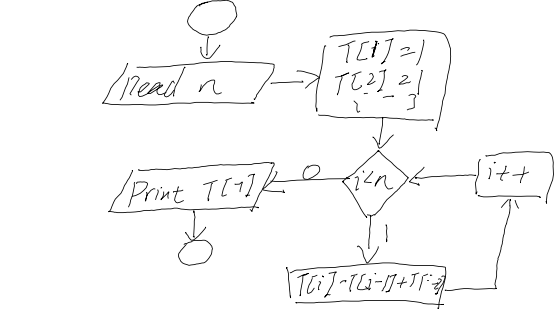 Read n
T[1] = 1
T[2] = 1
i = 3
i<n
0
Print T[n]
i++
1
T[i]=T[i-1]+T[i-2]